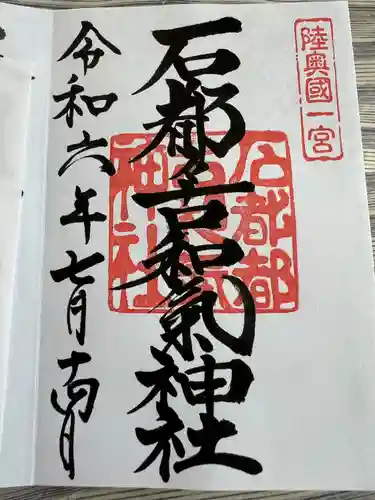 陸奥國一宮
石都々古和氣神社
石都都
神社
令和六年七月十四日